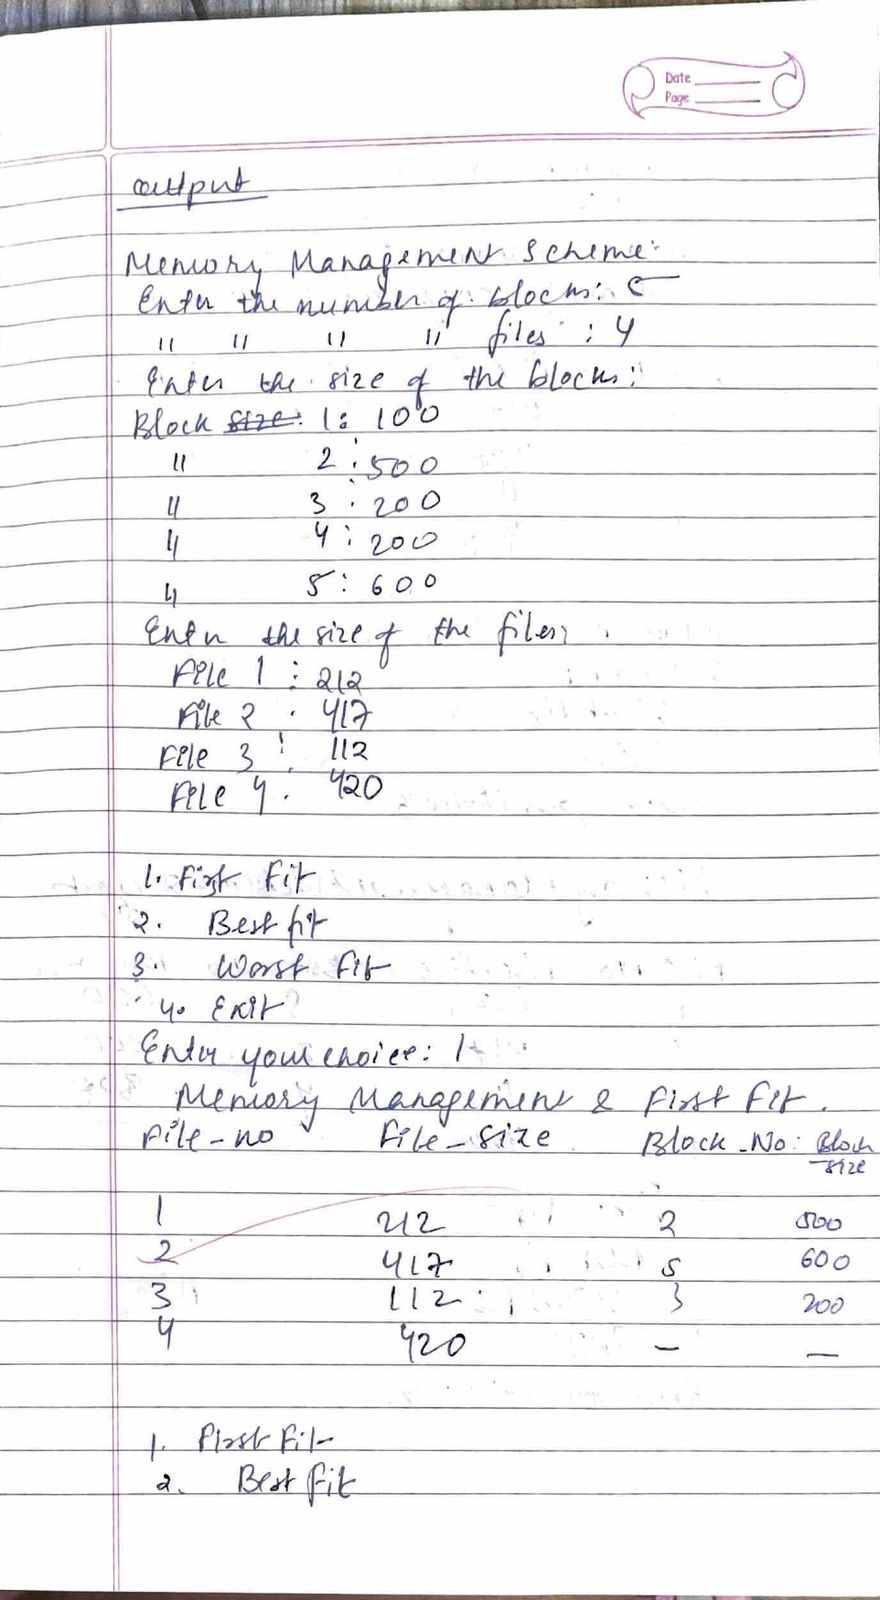 Date
Page
output
Memory Management Scheme:
Enter the number of blocks: 5
" " " " files : 4
Enter the size of the blocks:
Block size: 1: 100
" 2 : 500
" 3 : 200
" 4 : 200
" 5 : 600
Enter the size of the files:
File 1 : 212
File 2 : 417
File 3 : 112
File 4 : 420
1. First Fit
2. Best fit
3. Worst Fit
4. Exit
Enter your choice: 1
Memory Management & First Fit.
File-no File-size Block-No: Block size
1 212 2 500
2 417 5 600
3 112 3 200
4 420 — —
1. First Fit
2. Best fit